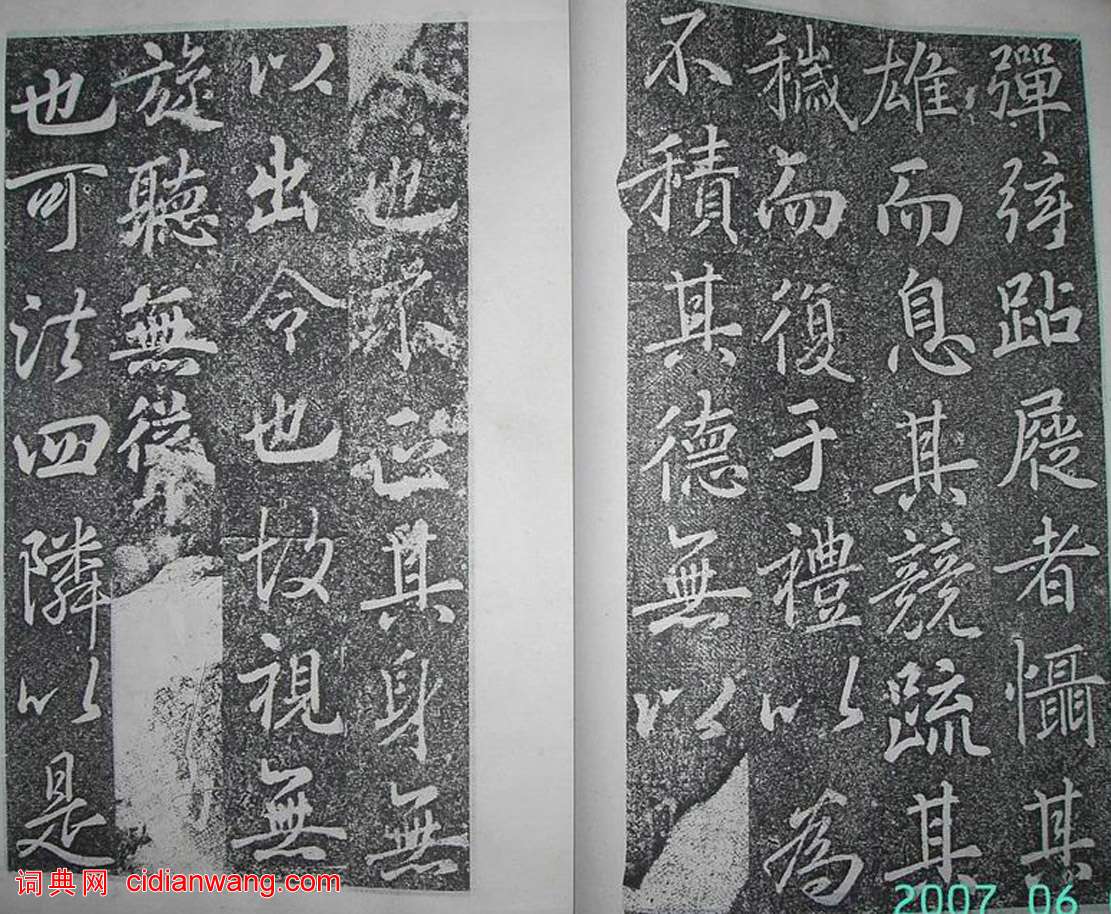 彈弦跕屣者懾其
雄而息其競疏其
穢而復于禮以為
不積其德無以
也不正其身無
以出令也故視無
旋聽無從
也可法四隣以是
词典网 cidianwang.com
2007 06